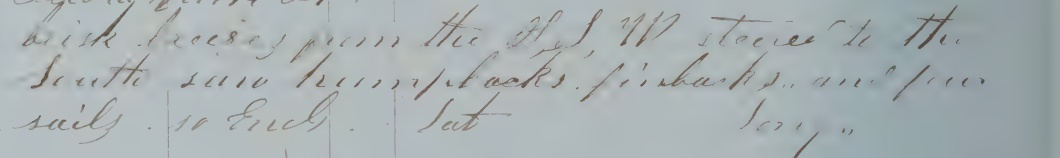 brisk breezes from the W, S, W steered to the
South saw humpbacks, finbacks, and four
sails. so Ends. Lat Long "